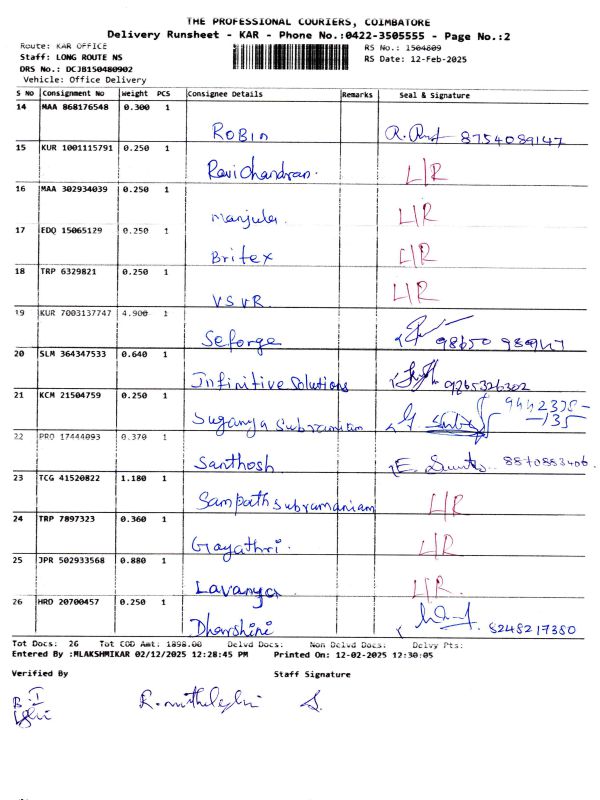 THE PROFESSIONAL COURIERS, COIMBATORE
Delivery Runsheet - KAR - Phone No.:0422-3505555 - Page No.:2
Route: KAR OFFICE RS No.: 1504809
Staff: LONG ROUTE NS RS Date: 12-Feb-2025
DRS No.: DCJB150480902
Vehicle: Office Delivery
S No Consignment No Weight PCS Consignee Details Remarks Seal & Signature
14 MAA 868176548 0.300 1
Robin 8754089147
15 KUR 1001115791 0.250 1
Ravichandran. L/R
16 MAA 302934039 0.250 1
Manjula. L/R
17 EDQ 15065129 0.250 1
Britex L/R
18 TRP 6329821 0.250 1
VSVR. L/R
19 KUR 7003137747 4.900 1
Seforge
20 SLM 364347533 0.640 1
Infinitive Solutions 9265326302
21 KCM 21504759 0.250 1
Suganya Subramiam 9442335-
-135
22 PRO 17444093 0.370 1
Santhosh 8870883406.
23 TCG 41520822 1.180 1
Sampath subramaniam L/R
24 TRP 7897323 0.360 1
Gayathri. L/R
25 JPR 502933568 0.880 1
Lavanya L/R.
26 HRD 20700457 0.250 1
Dharshini 8248217380
Tot Docs: 26 Tot COD Amt: 1898.00 Delvd Docs: Non Delvd Docs: Delvy Pts:
Entered By :MLAKSHMIKAR 02/12/2025 12:28:45 PM Printed On: 12-02-2025 12:30:05
Verified By Staff Signature